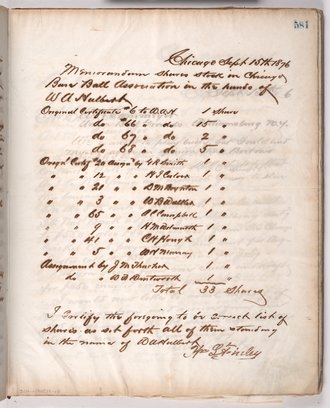 581
Chicago Sept 15th 1876
Memorandum shares stock on Chicago
Base Ball Association in the hands of
W A Hulbert
Original Certificate # 6 to W A H 1 Share
do 66 " do 15 "
do 67 " do 2 "
do 68 " do 5 "
Orign Certf # 20 Asign by G R Smith 1 "
" " 12 " 1 "
" " 21 " Boynton 1 "
" " 3 " 1 "
" " 65 " Campbell 1 "
" " 9 " 1 "
" " 41 " C H Hough 1 "
" " 5 " Murray 1 "
Assignment by J M Thacher 1 "
do " 1 "
Total 33 Shares
I Certify the foregoing to be correct list of
shares as set forth all of them standing
in the name of W A Hulbert
Wm